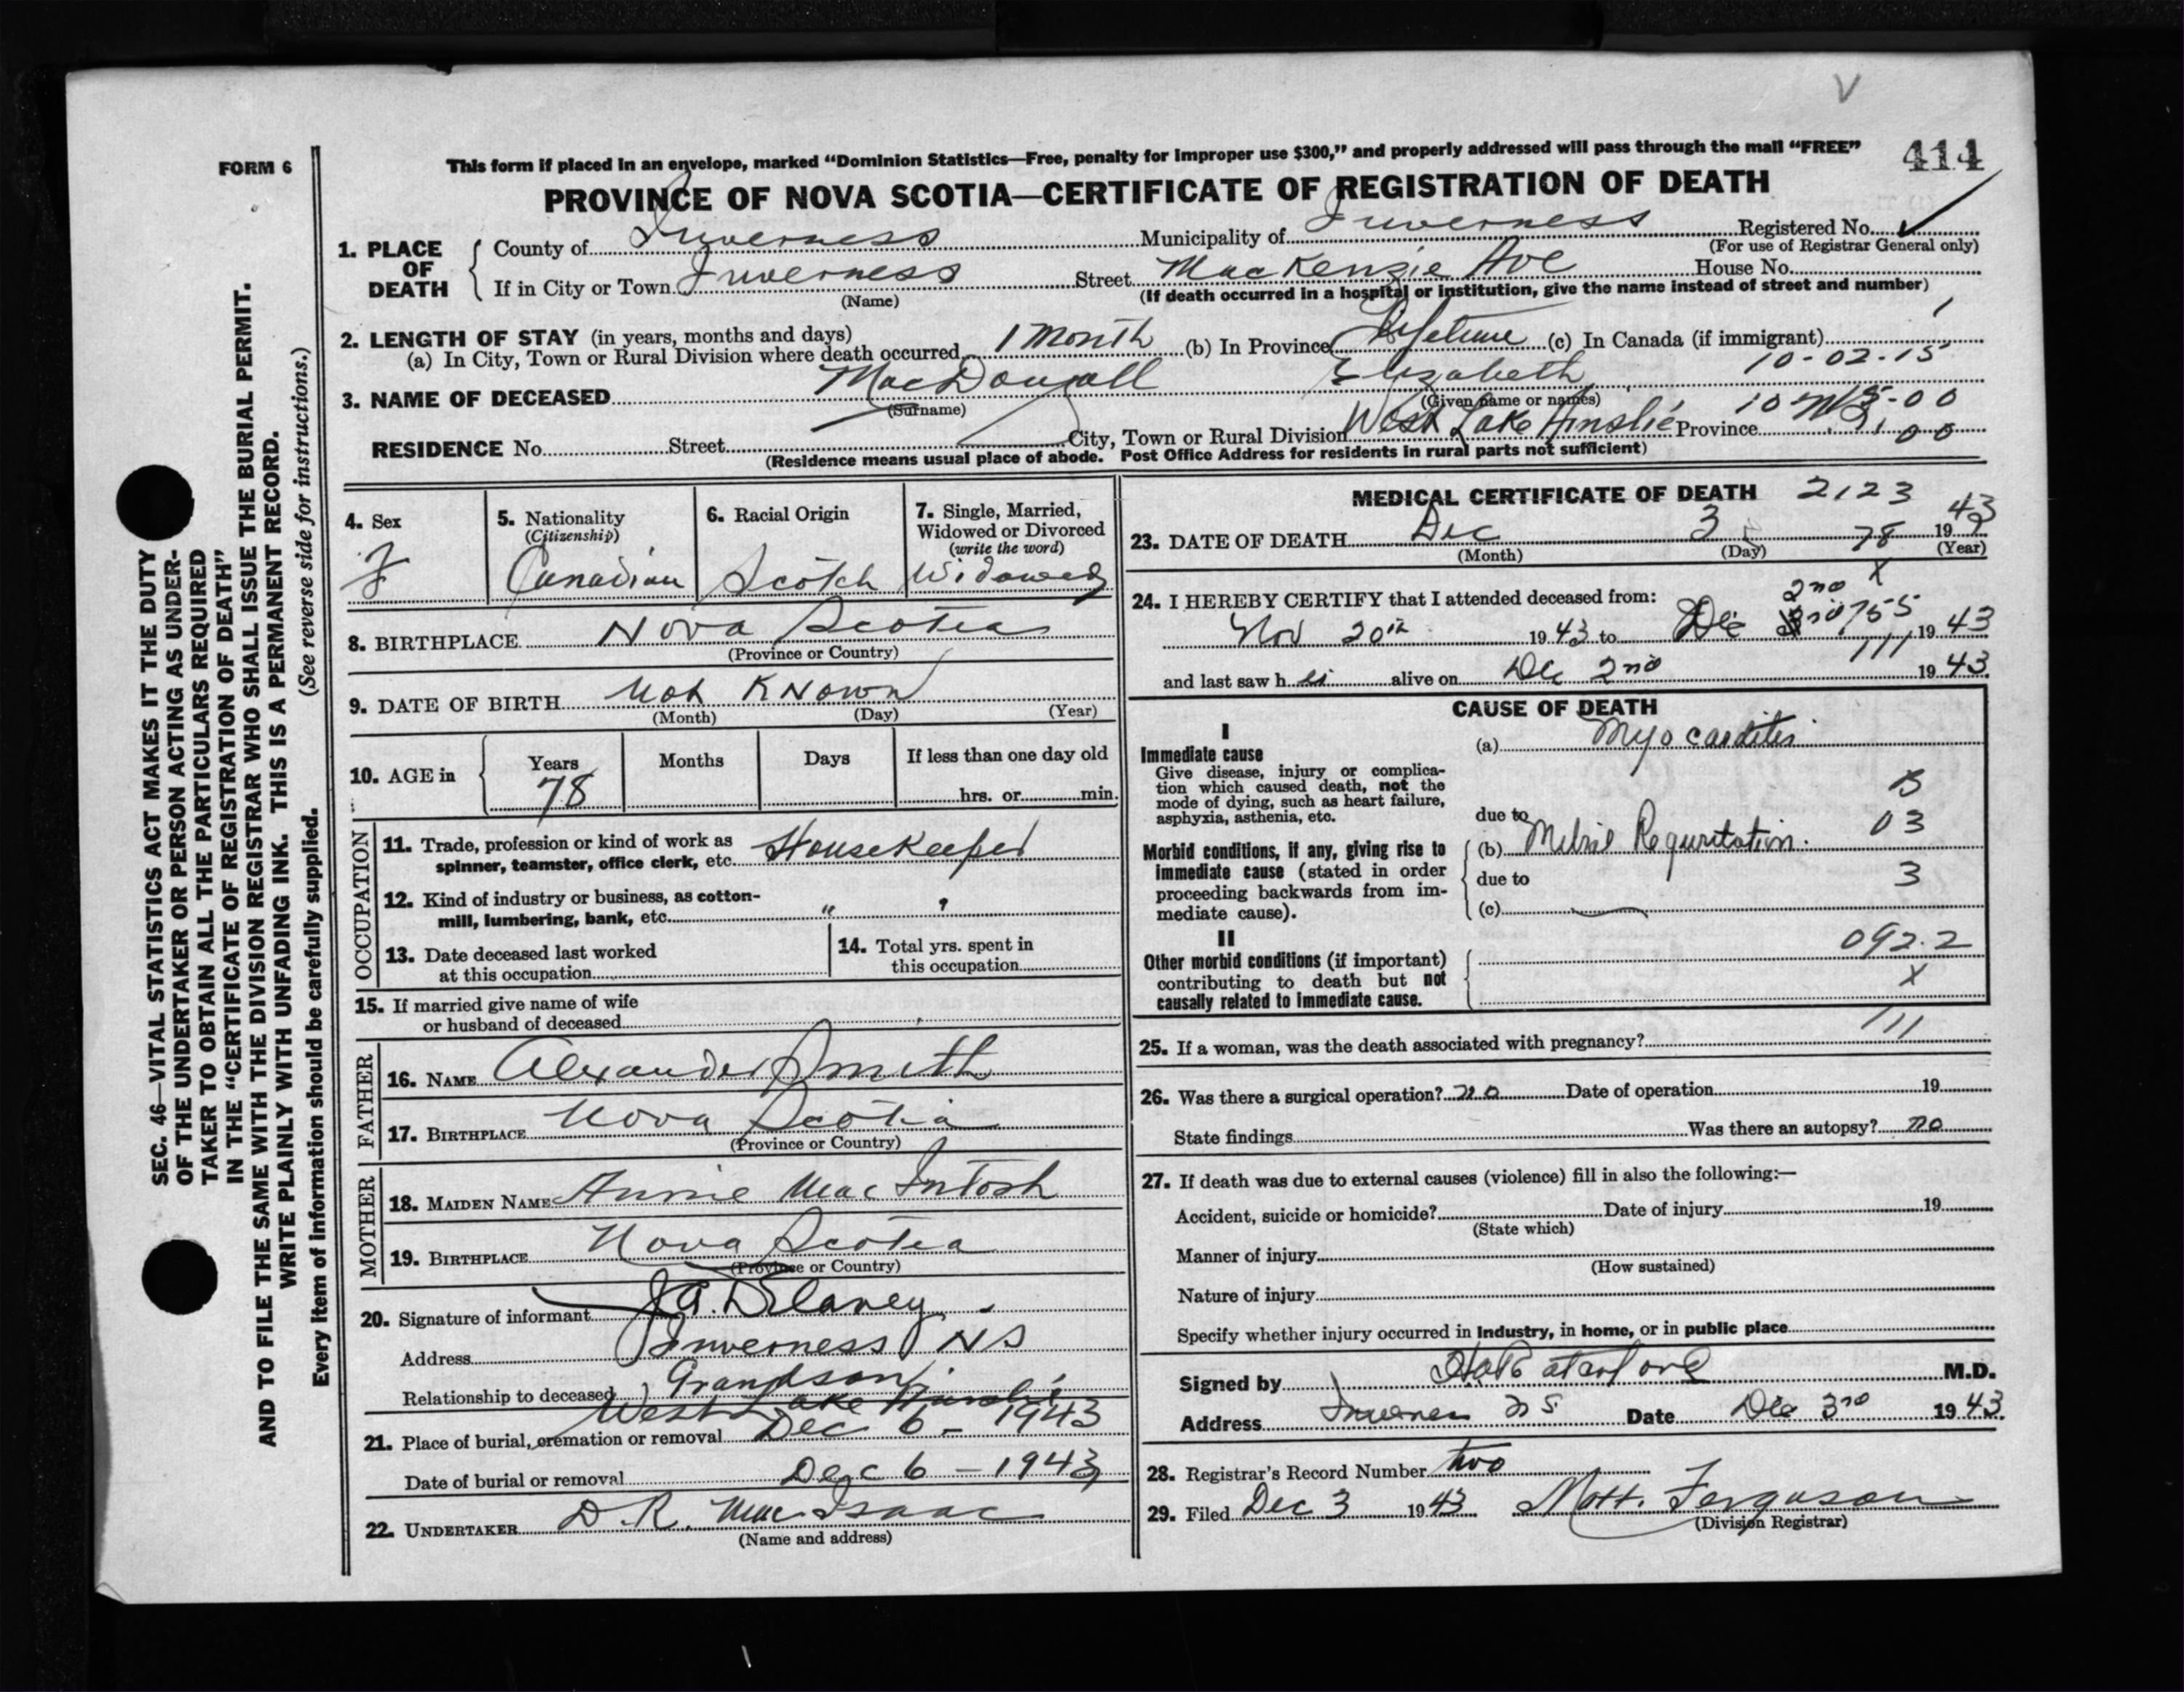 V
FORM 6
This form if placed in an envelope, marked “Dominion Statistics—Free, penalty for improper use $300,” and properly addressed will pass through the mail “FREE”
414
PROVINCE OF NOVA SCOTIA—CERTIFICATE OF REGISTRATION OF DEATH
1. PLACE OF DEATH
County of Inverness Municipality of Inverness Registered No.
(For use of Registrar General only)
If in City or Town Inverness Street MacKenzie Ave House No.
(Name) (If death occurred in a hospital or institution, give the name instead of street and number)
2. LENGTH OF STAY (in years, months and days)
(a) In City, Town or Rural Division where death occurred 1 Month (b) In Province Lifetime (c) In Canada (if immigrant)
10-02-15
3. NAME OF DECEASED MacDougall Elizabeth
(Surname) (Given name or names)
RESIDENCE No. Street City, Town or Rural Division West Lake Ainslie Province N.S.
(Residence means usual place of abode. Post Office Address for residents in rural parts not sufficient)
4. Sex
F
5. Nationality
(Citizenship)
Canadian
6. Racial Origin
Scotch
7. Single, Married,
Widowed or Divorced
(write the word)
Widowed
8. BIRTHPLACE Nova Scotia
(Province or Country)
9. DATE OF BIRTH Not Known
(Month) (Day) (Year)
10. AGE in
Years
78
Months
Days
If less than one day old
hrs. or min.
OCCUPATION
11. Trade, profession or kind of work as
spinner, teamster, office clerk, etc. Housekeeper
12. Kind of industry or business, as cotton-
mill, lumbering, bank, etc. " "
13. Date deceased last worked
at this occupation
14. Total yrs. spent in
this occupation
15. If married give name of wife
or husband of deceased
FATHER
16. NAME Alexander Smith
17. BIRTHPLACE Nova Scotia
(Province or Country)
MOTHER
18. MAIDEN NAME Annie MacIntosh
19. BIRTHPLACE Nova Scotia
(Province or Country)
20. Signature of informant J.A. Delaney
Address Inverness NS
Relationship to deceased Grandson
West Lake Ainslie
21. Place of burial, cremation or removal Dec 6 - 1943
Date of burial or removal Dec 6 - 1943
22. UNDERTAKER D. R. MacIsaac
(Name and address)
MEDICAL CERTIFICATE OF DEATH 2123
23. DATE OF DEATH Dec 3 78 1943
(Month) (Day) (Year)
24. I HEREBY CERTIFY that I attended deceased from:
Nov 20th 1943 to Dec 2nd 1943
0755
111
and last saw her alive on Dec 2nd 1943
CAUSE OF DEATH
I
Immediate cause
Give disease, injury or complica-
tion which caused death, not the
mode of dying, such as heart failure,
asphyxia, asthenia, etc.
(a) Myocarditis
due to
Morbid conditions, if any, giving rise to
immediate cause (stated in order
proceeding backwards from im-
mediate cause).
(b) Mitral Reguritation.
due to
(c)
B
03
3
II
Other morbid conditions (if important)
contributing to death but not
causally related to immediate cause.
092.2
X
111
25. If a woman, was the death associated with pregnancy?
26. Was there a surgical operation? no Date of operation 19
State findings Was there an autopsy? no
27. If death was due to external causes (violence) fill in also the following:—
Accident, suicide or homicide? Date of injury 19
(State which)
Manner of injury
(How sustained)
Nature of injury
Specify whether injury occurred in industry, in home, or in public place
Signed by M.D.
Address Inverness NS Date Dec 3rd 1943
28. Registrar's Record Number two
29. Filed Dec 3 1943 Matt. Ferguson
(Division Registrar)
SEC. 46—VITAL STATISTICS ACT MAKES IT THE DUTY
OF THE UNDERTAKER OR PERSON ACTING AS UNDER-
TAKER TO OBTAIN ALL THE PARTICULARS REQUIRED
IN THE “CERTIFICATE OF REGISTRATION OF DEATH”
AND TO FILE THE SAME WITH THE DIVISION REGISTRAR WHO SHALL ISSUE THE BURIAL PERMIT.
WRITE PLAINLY WITH UNFADING INK. THIS IS A PERMANENT RECORD.
Every item of information should be carefully supplied. (See reverse side for instructions.)